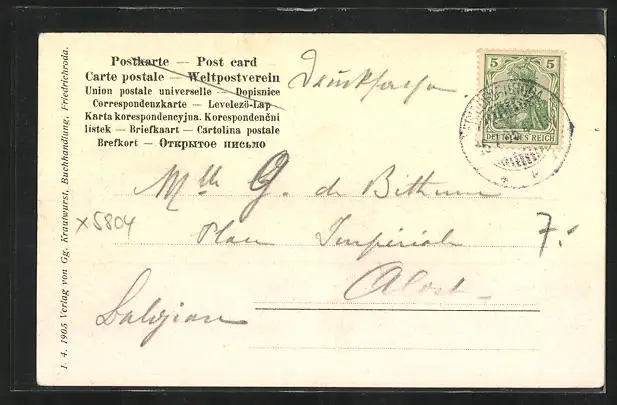 Postkarte — Post card
Carte postale — Weltpostverein
Union postale universelle — Dopisnice
Correspondenzkarte — Levelező-Lap
Karta korespondencyjna. Korespondenční
listek — Briefkaart — Cartolina postale
Brefkort — Открытое письмо
Drucksache
5 5
DEUTSCHES REICH
Mlle G. de Bethune
Place Impériale
7.-
Alost
Belgien
x5804
1. 4. 1905 Verlag von Gg. Krautwurst, Buchhandlung, Friedrichroda.